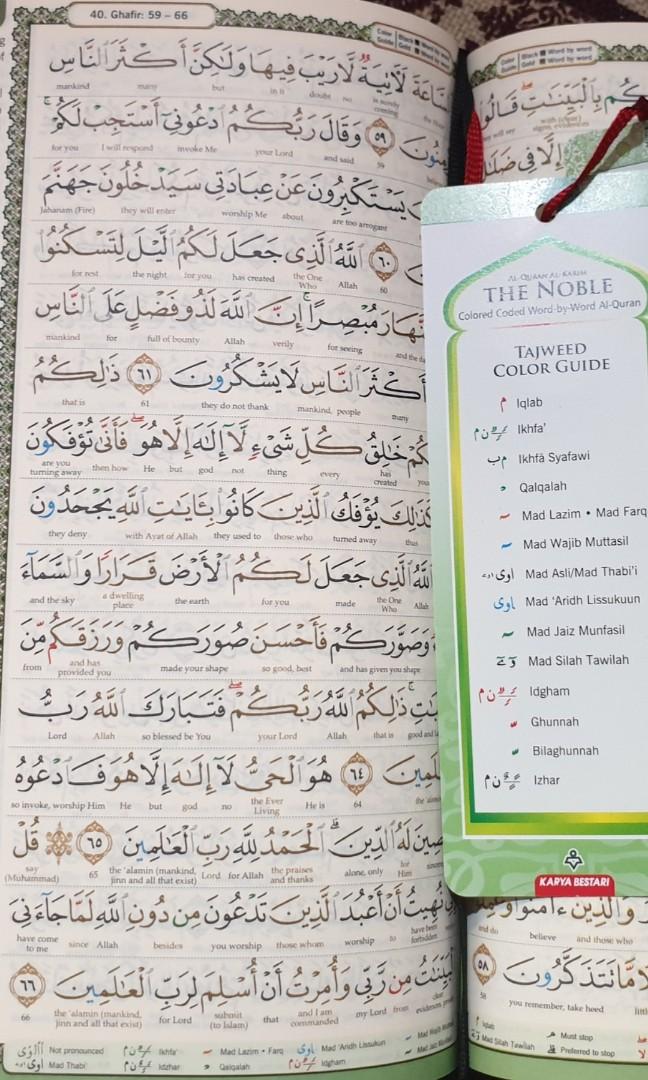 40. Ghafir: 59 – 66
لَآتِيَةٌ لَّا رَيْبَ فِيهَا وَلَٰكِنَّ أَكْثَرَ النَّاسِ
mankind many but in it doubt no is surely coming
٥٩ وَقَالَ رَبُّكُمُ ادْعُونِي أَسْتَجِبْ لَكُمْ
for you I will respond invoke Me your Lord and said 59
يَسْتَكْبِرُونَ عَنْ عِبَادَتِي سَيَدْخُلُونَ جَهَنَّمَ
Jahanam (Fire) they will enter worship Me about are too arrogant
٦٠ اللَّهُ الَّذِي جَعَلَ لَكُمُ اللَّيْلَ لِتَسْكُنُوا
for rest the night for you has created the One Who Allah 60
مُبْصِرًا إِنَّ اللَّهَ لَذُو فَضْلٍ عَلَى النَّاسِ
mankind for full of bounty Allah verily for seeing and the
أَكْثَرَ النَّاسِ لَا يَشْكُرُونَ ٦١ ذَٰلِكُمُ
that is 61 they do not thank mankind, people many
خَالِقُ كُلِّ شَيْءٍ لَّا إِلَٰهَ إِلَّا هُوَ فَأَنَّىٰ تُؤْفَكُونَ
are you turning away then how He but god not thing every has created
كَذَٰلِكَ يُؤْفَكُ الَّذِينَ كَانُوا بِآيَاتِ اللَّهِ يَجْحَدُونَ
they deny with Ayat of Allah they used to those who turned away thus
اللَّهُ الَّذِي جَعَلَ لَكُمُ الْأَرْضَ قَرَارًا وَالسَّمَاءَ
and the sky a dwelling place the earth for you made the One Who Allah
وَصَوَّرَكُمْ فَأَحْسَنَ صُوَرَكُمْ وَرَزَقَكُم مِّنَ
from and has provided you made your shape so good, best and has given you shape
ذَٰلِكُمُ اللَّهُ رَبُّكُمْ فَتَبَارَكَ اللَّهُ رَبُّ
Lord Allah so blessed be You your Lord Allah that is good and
٦٤ هُوَ الْحَيُّ لَا إِلَٰهَ إِلَّا هُوَ فَادْعُوهُ
so invoke, worship Him He but god no the Ever Living He is 64
لَهُ الدِّينَ الْحَمْدُ لِلَّهِ رَبِّ الْعَالَمِينَ ٦٥ قُلْ
say (Muhammad) 65 the 'alamin (mankind, jinn and all that exist) Lord for Allah the praises and thanks alone, only for Him
نُهِيتُ أَنْ أَعْبُدَ الَّذِينَ تَدْعُونَ مِن دُونِ اللَّهِ لَمَّا جَاءَنِيَ
have come to me since Allah besides you worship those whom worship to have been forbidden
مِن رَّبِّي وَأُمِرْتُ أَنْ أُسْلِمَ لِرَبِّ الْعَالَمِينَ ٦٦
66 the 'alamin (mankind, jinn and all that exist) for Lord submit (to Islam) that and I am commanded my Lord from
Not pronounced Ikhfa' Mad Lazim • Farq Mad 'Aridh Lissukun
Mad Thabi' Idzhar Qalqalah Idgham
Color Guide Black Word by word
Gold Word by word
بِالْبَيِّنَاتِ قَالُوا
إِلَّا فِي
AL-QURAAN AL-KARIM
THE NOBLE
Colored Coded Word-by-Word Al-Quran
TAJWEED
COLOR GUIDE
Iqlab
Ikhfa'
Ikhfā Syafawi
Qalqalah
Mad Lazim • Mad Farq
Mad Wajib Muttasil
Mad Asli/Mad Thabi'i
Mad 'Aridh Lissukuun
Mad Jaiz Munfasil
Mad Silah Tawilah
Idgham
Ghunnah
Bilaghunnah
Izhar
KARYA BESTARI
وَالَّذِينَ آمَنُوا
believe and those who
مَّا تَتَذَكَّرُونَ ٥٨
58 you remember, take heed
Iqlab Must stop
Mad Silah Tawilah Preferred to stop